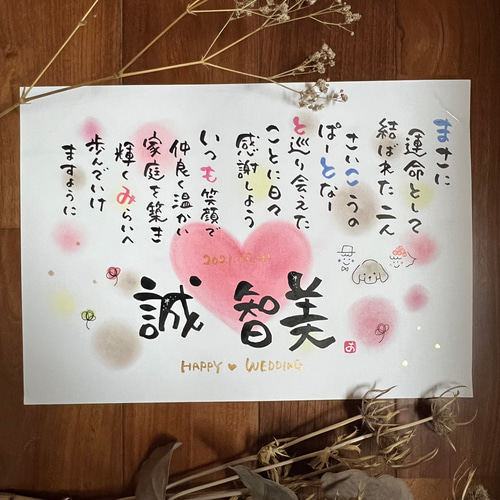 まさに
運命として
結ばれた二人
さいこうの
ぱーとなー
と巡り会えた
ことに日々
感謝しよう
いつも笑顔で
仲良く温かい
家庭を築き
輝くみらいへ
歩んでいけ
ますように
智美
誠
HAPPY ♥ WEDDING